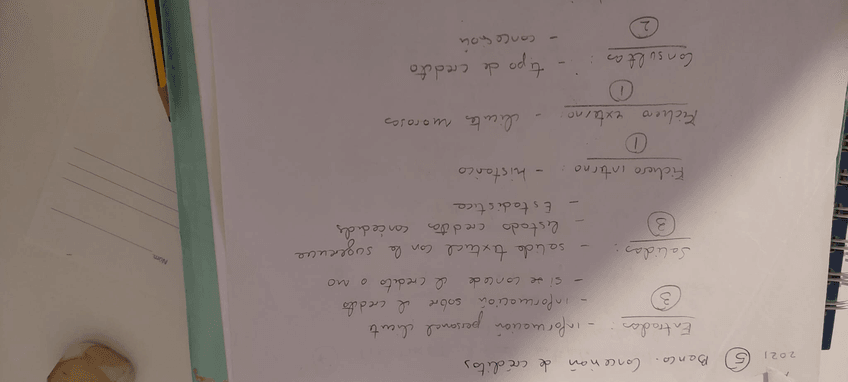 2021 5 Banco. Concesión de créditos
Entradas: - información personal client
3 - información sobre el credito
- si se concede el credito o no
Salidas: - salida textual con la sugerencia
3 - listado creditos concedidos
- Estadistica
Fichero interno: - historico
1
Fichero externo: - clientes morosos
1
Consultas: - tipo de credito
2 - concesión
Núm